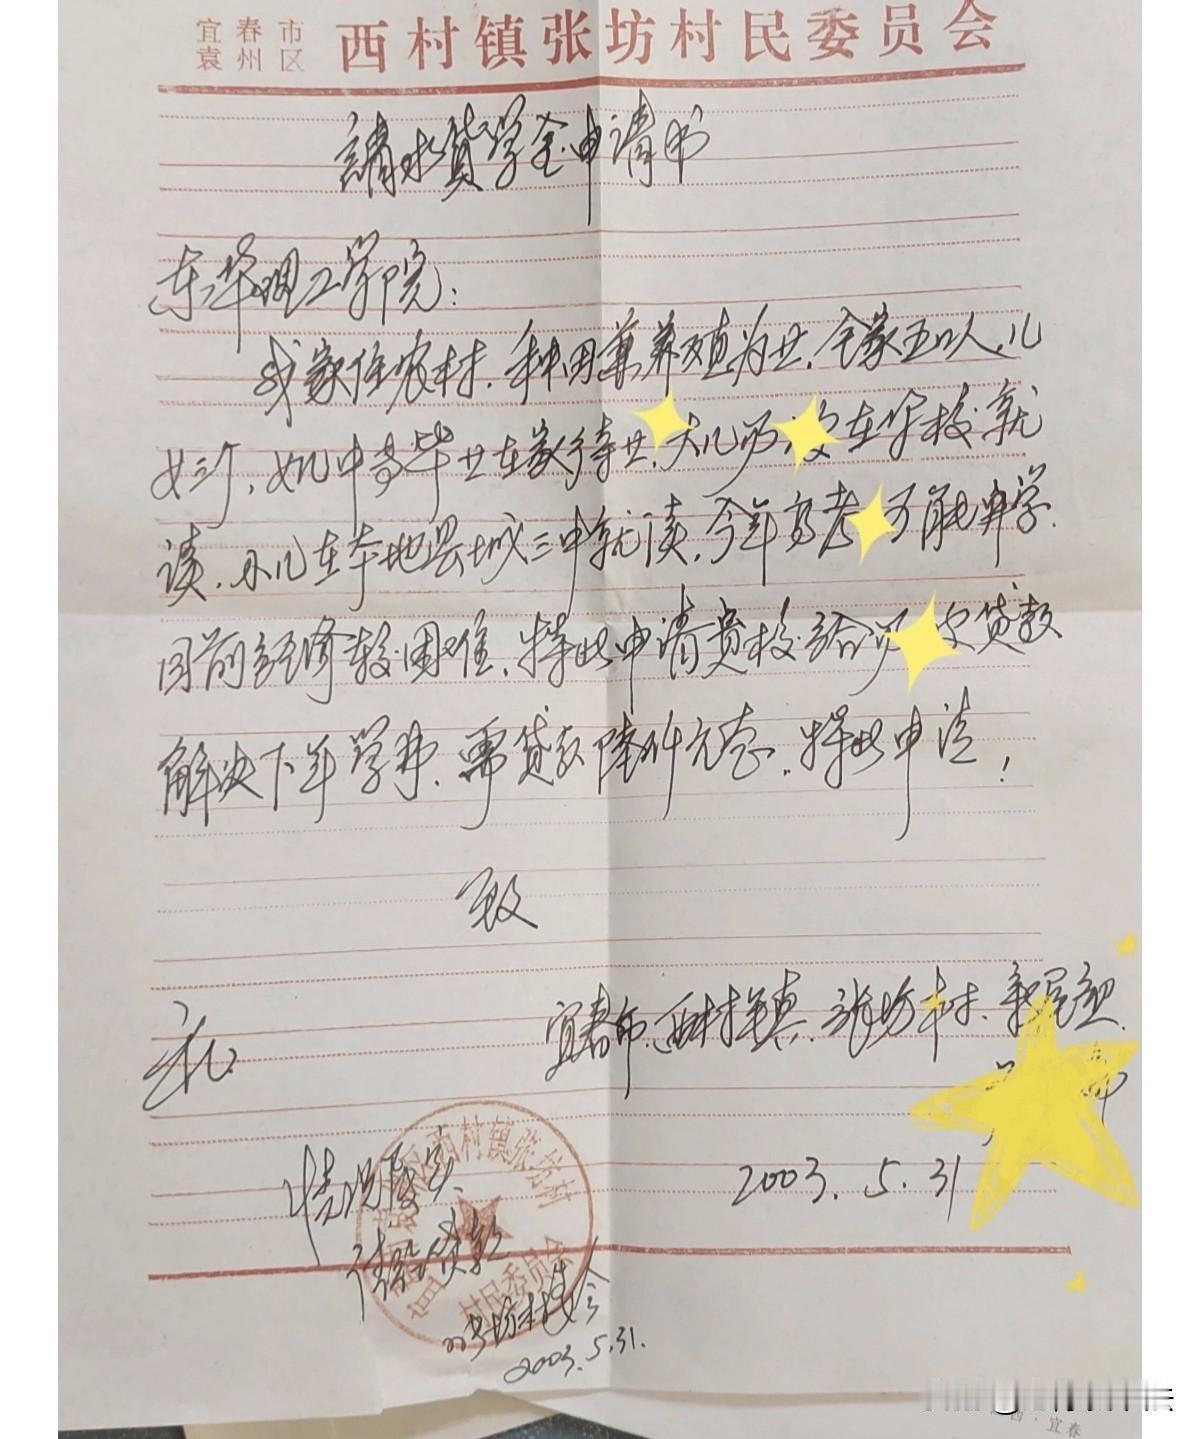 宜春市
袁州区
西村镇张坊村民委员会
請求贷学金申请书
东华理工学院：
我家住农村，种田兼养殖为业，全家五口人，儿
女三个，女儿中专毕业在家待业，大儿 在学校就
读，小儿在本地县城三中就读，今年高考 可能升学
目前经济较困难，特此申请贵校给 贷款
解决下年学费，需贷款陆仟元左右，特此申请！
致
礼
宜春市、西村镇、张坊村、
2003. 5. 31
西村镇张坊村
村民委员会
情况属实
请给贷款
张坊村委会
2003. 5. 31.
西·宜春